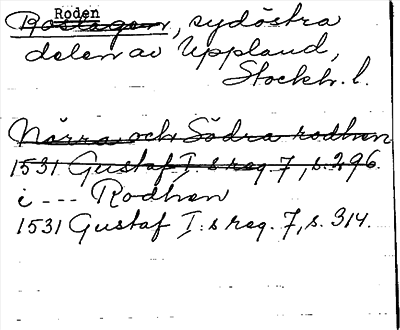 Roden
Roslagen, sydöstra
delen av Uppland,
Stockh. l.
Norra och Södra rodhen
1531 Gustaf I:s reg. 7, s. 296.
i --- Rodhen
1531 Gustaf I:s reg. 7, s. 314.